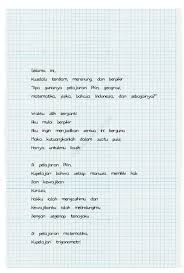 Selama ini,
Kuselalu terdiam, merenung, dan berpikir
"Apa gunanya pelajaran PKn, geografi,
matematika, fisika, bahasa Indonesia, dan sebagainya?"
Waktu silih berganti
Aku mulai berpikir
Aku ingin menjadikan semua ini berguna
Maka kutuangkanlah dalam suatu puisi
Hanya untukmu kasih
Di pelajaran PKn,
Kupelajari bahwa setiap manusia memiliki hak
dan kewajiban
Kurasa,
Hakku ialah mencintaimu dan
Kewajibanku ialah melindungimu
Dengan segenap tenagaku
Di pelajaran matematika,
Kupelajari trigonometri